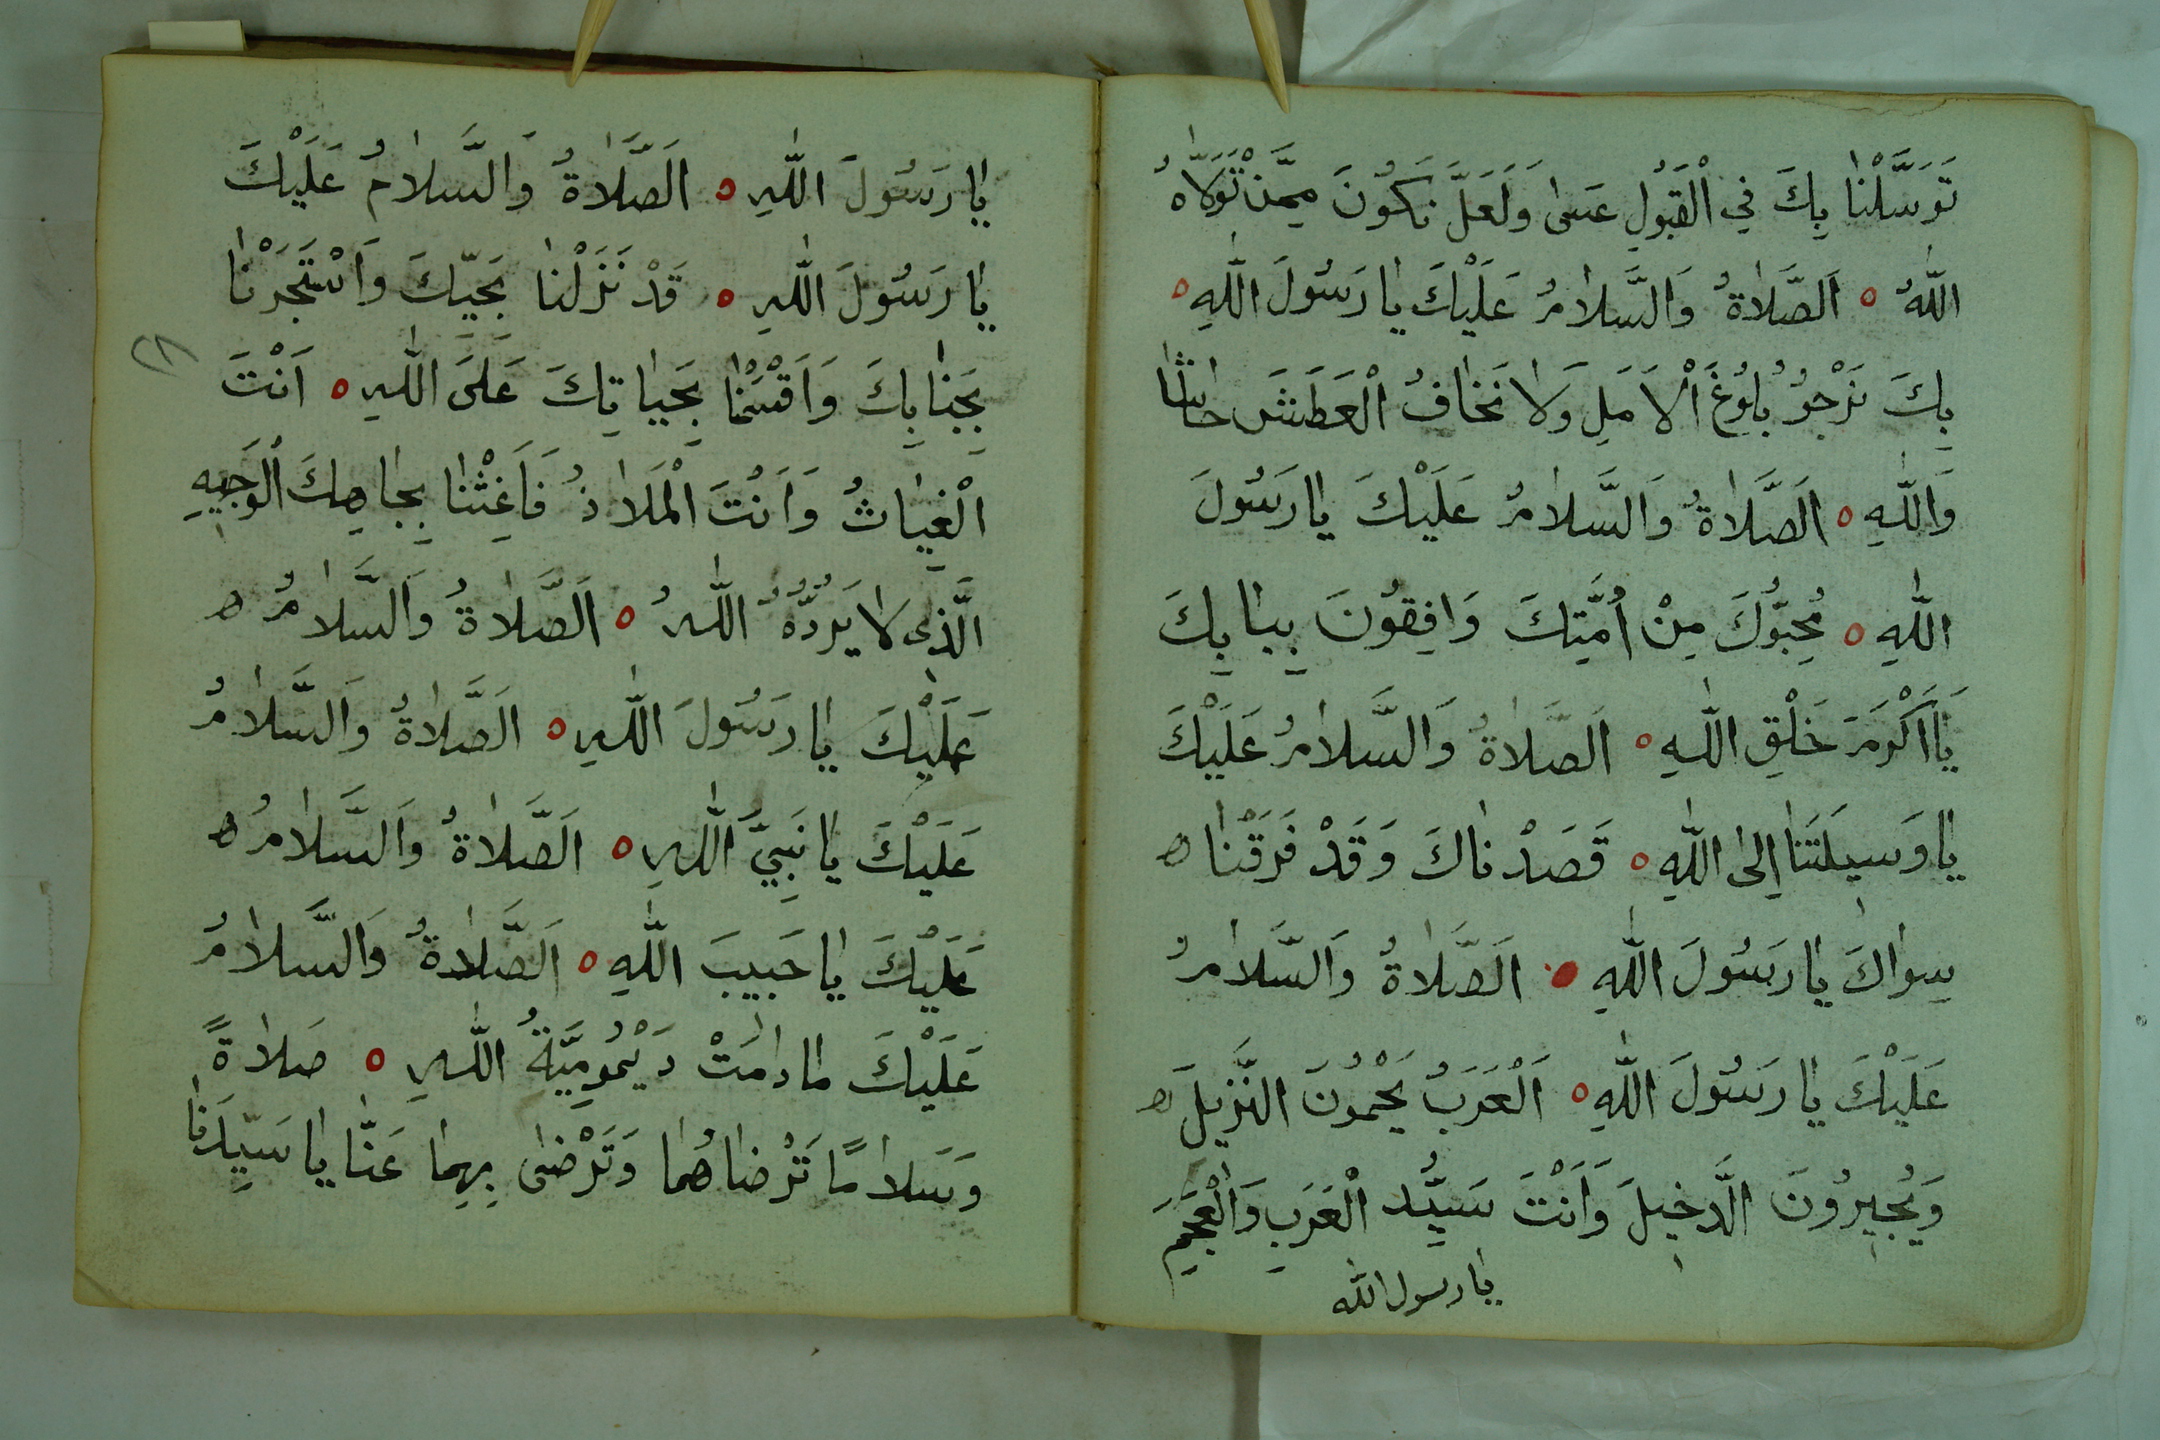 تَوَسَّلْنٰا بِكَ فِي الْقَبُولِ عَسٰى وَلَعَلَّ نَكُونَ مِمَّنْ تَوَلَّاهُ
اللّٰهُ ه اَلصَّلَاةُ وَالسَّلَامُ عَلَيْكَ يٰا رَسُولَ اللّٰهِ ه
بِكَ نَرْجُو بُلُوغَ الْاَمَلِ وَلَا نَخٰافُ الْعَطَشَ حٰاشٰا
وَاللّٰهِ ه اَلصَّلَاةُ وَالسَّلَامُ عَلَيْكَ يٰا رَسُولَ
اللّٰهِ ه مُحِبُّوكَ مِنْ اُمَّتِكَ وَافِقُونَ بِبٰابِكَ
يٰا اَكْرَمَ خَلْقِ اللّٰهِ ه اَلصَّلَاةُ وَالسَّلَامُ عَلَيْكَ
يٰا وَسِيلَتَنٰا اِلَى اللّٰهِ ه قَصَدْنٰاكَ وَقَدْ فَرَقْنٰا ه
سِوٰاكَ يٰا رَسُولَ اللّٰهِ ه اَلصَّلَاةُ وَالسَّلَامُ
عَلَيْكَ يٰا رَسُولَ اللّٰهِ ه اَلْعَرَبُ يَحْمُونَ النَّزِيلَ ه
وَيُجِيرُونَ الدَّخِيلَ وَاَنْتَ سَيِّدُ الْعَرَبِ وَالْعَجَمِ
يٰا رسول الله
يٰا رَسُولَ اللّٰهِ ه اَلصَّلَاةُ وَالسَّلَامُ عَلَيْكَ
يٰا رَسُولَ اللّٰهِ ه قَدْ نَزَلْنٰا بِحَيِّكَ وَاسْتَجَرْنٰا
بِجَنٰابِكَ وَاَقْسَمْنٰا بِحَيٰاتِكَ عَلَى اللّٰهِ ه اَنْتَ
٢٨
الْغِيٰاثُ وَاَنْتَ الْمَلَاذُ فَاَغِثْنٰا بِجٰاهِكَ الْوَجِيهِ
الَّذِى لَا يَرُدُّهُ اللّٰهُ ه اَلصَّلَاةُ وَالسَّلَامُ ه
عَلَيْكَ يٰا رَسُولَ اللّٰهِ ه اَلصَّلَاةُ وَالسَّلَامُ
عَلَيْكَ يٰا نَبِيَّ اللّٰهِ ه اَلصَّلَاةُ وَالسَّلَامُ ه
عَلَيْكَ يٰا حَبِيبَ اللّٰهِ ه اَلصَّلَاةُ وَالسَّلَامُ
عَلَيْكَ مٰا دٰامَتْ دَيْمُومِيَّةُ اللّٰهِ ه صَلَاةً
وَسَلَامًا تَرْضٰاهُمٰا وَتَرْضٰى بِهِمٰا عَنّٰا يٰا سَيِّدَنٰا